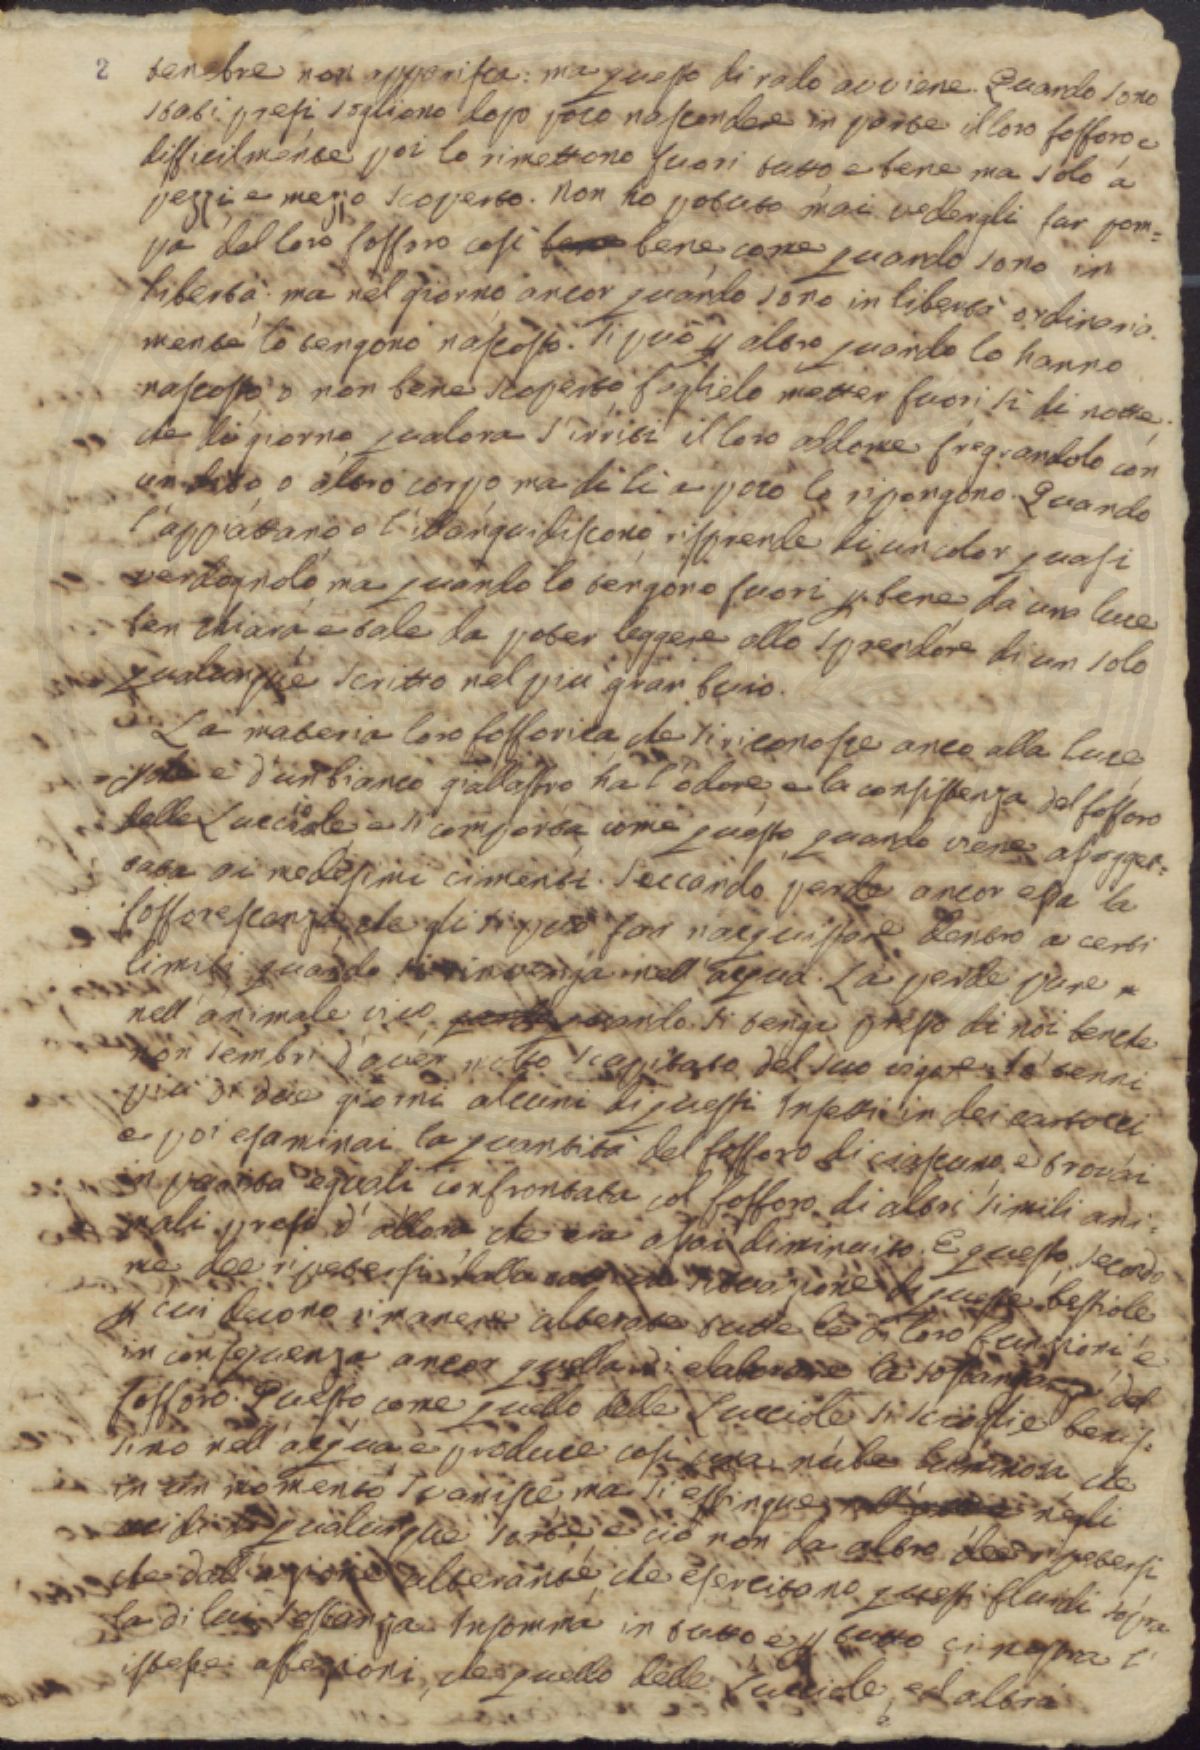 2
tenebre non apparisca: ma questo di rado avviene. Quando sono
stati presi sogliono dopo poco nascondere in parte il loro fosforo e
difficilmente poi lo rimettono fuori tutto e bene ma solo à
pezzi e mezzo scoperto. Non ho potuto mai vedergli far pom=
pa del loro fosforo così bene come quando sono in
libertà: ma nel giorno ancor quando sono in libertà ordinaria.
mente lo tengono nascosto. Si può p altro quando lo hanno
nascosto o non bene scoperto farglielo metter fuori sì di notte
che di giorno qualora s'irriti il loro addome fregandolo con
un dito o altro corpo ma di lì a poco lo ripongono. Quando
l'appiattano o l'illanguidiscono risprende di un color quasi
verdognolo ma quando lo tengono fuori p bene dà una luce
ben chiara e tale da poter leggere allo sprendore di un solo
qualunque scritto nel più gran buio.
La materia loro fosforica che si riconosce anco alla luce
è d'un bianco giallastro ha l'odore e la consistenza del fosforo
delle Lucciole e si comporta come questo quando viene assogget=
tata ai medesimi cimenti. Seccando perde ancor essa la
fosforescenza che gli si può far riacquistare dentro a certi
limiti quando si rinvenga nell'acqua. La perde pure
nell'animale vivo quando si tenga preso di noi benche
non sembri d'aver molto scapitato del suo vigore. Io tenni
più di due giorni alcuni di questi Insetti in dei cartocci
e poi esaminai la quantità del fosforo di ciascuno e trovai
in parità eguali confrontata col fosforo di altri simili ani=
mali presi d'allora che era assai diminuito. E questo secondo
me dee ripetersi dalla situazione di queste bestiole
p cui devono rimanere alterate tutte le di loro funzioni e
in conseguenza ancor quella di elaborare la sostanza del
fosforo. Questo come quello delle Lucciole si scioglie benis=
simo nell'acqua e produce così una nube luminosa che
in un momento svanisce ma si estingue negli
acidi di qualunque sorte e ciò non da altro dee ripetersi
che dall'azione alterante che esercitano questi fluidi sopra
la di lui sostanza. Insomma in tutto e p tutto ci mostra l'
istesse affezioni, che quello delle Lucciole, ed altra